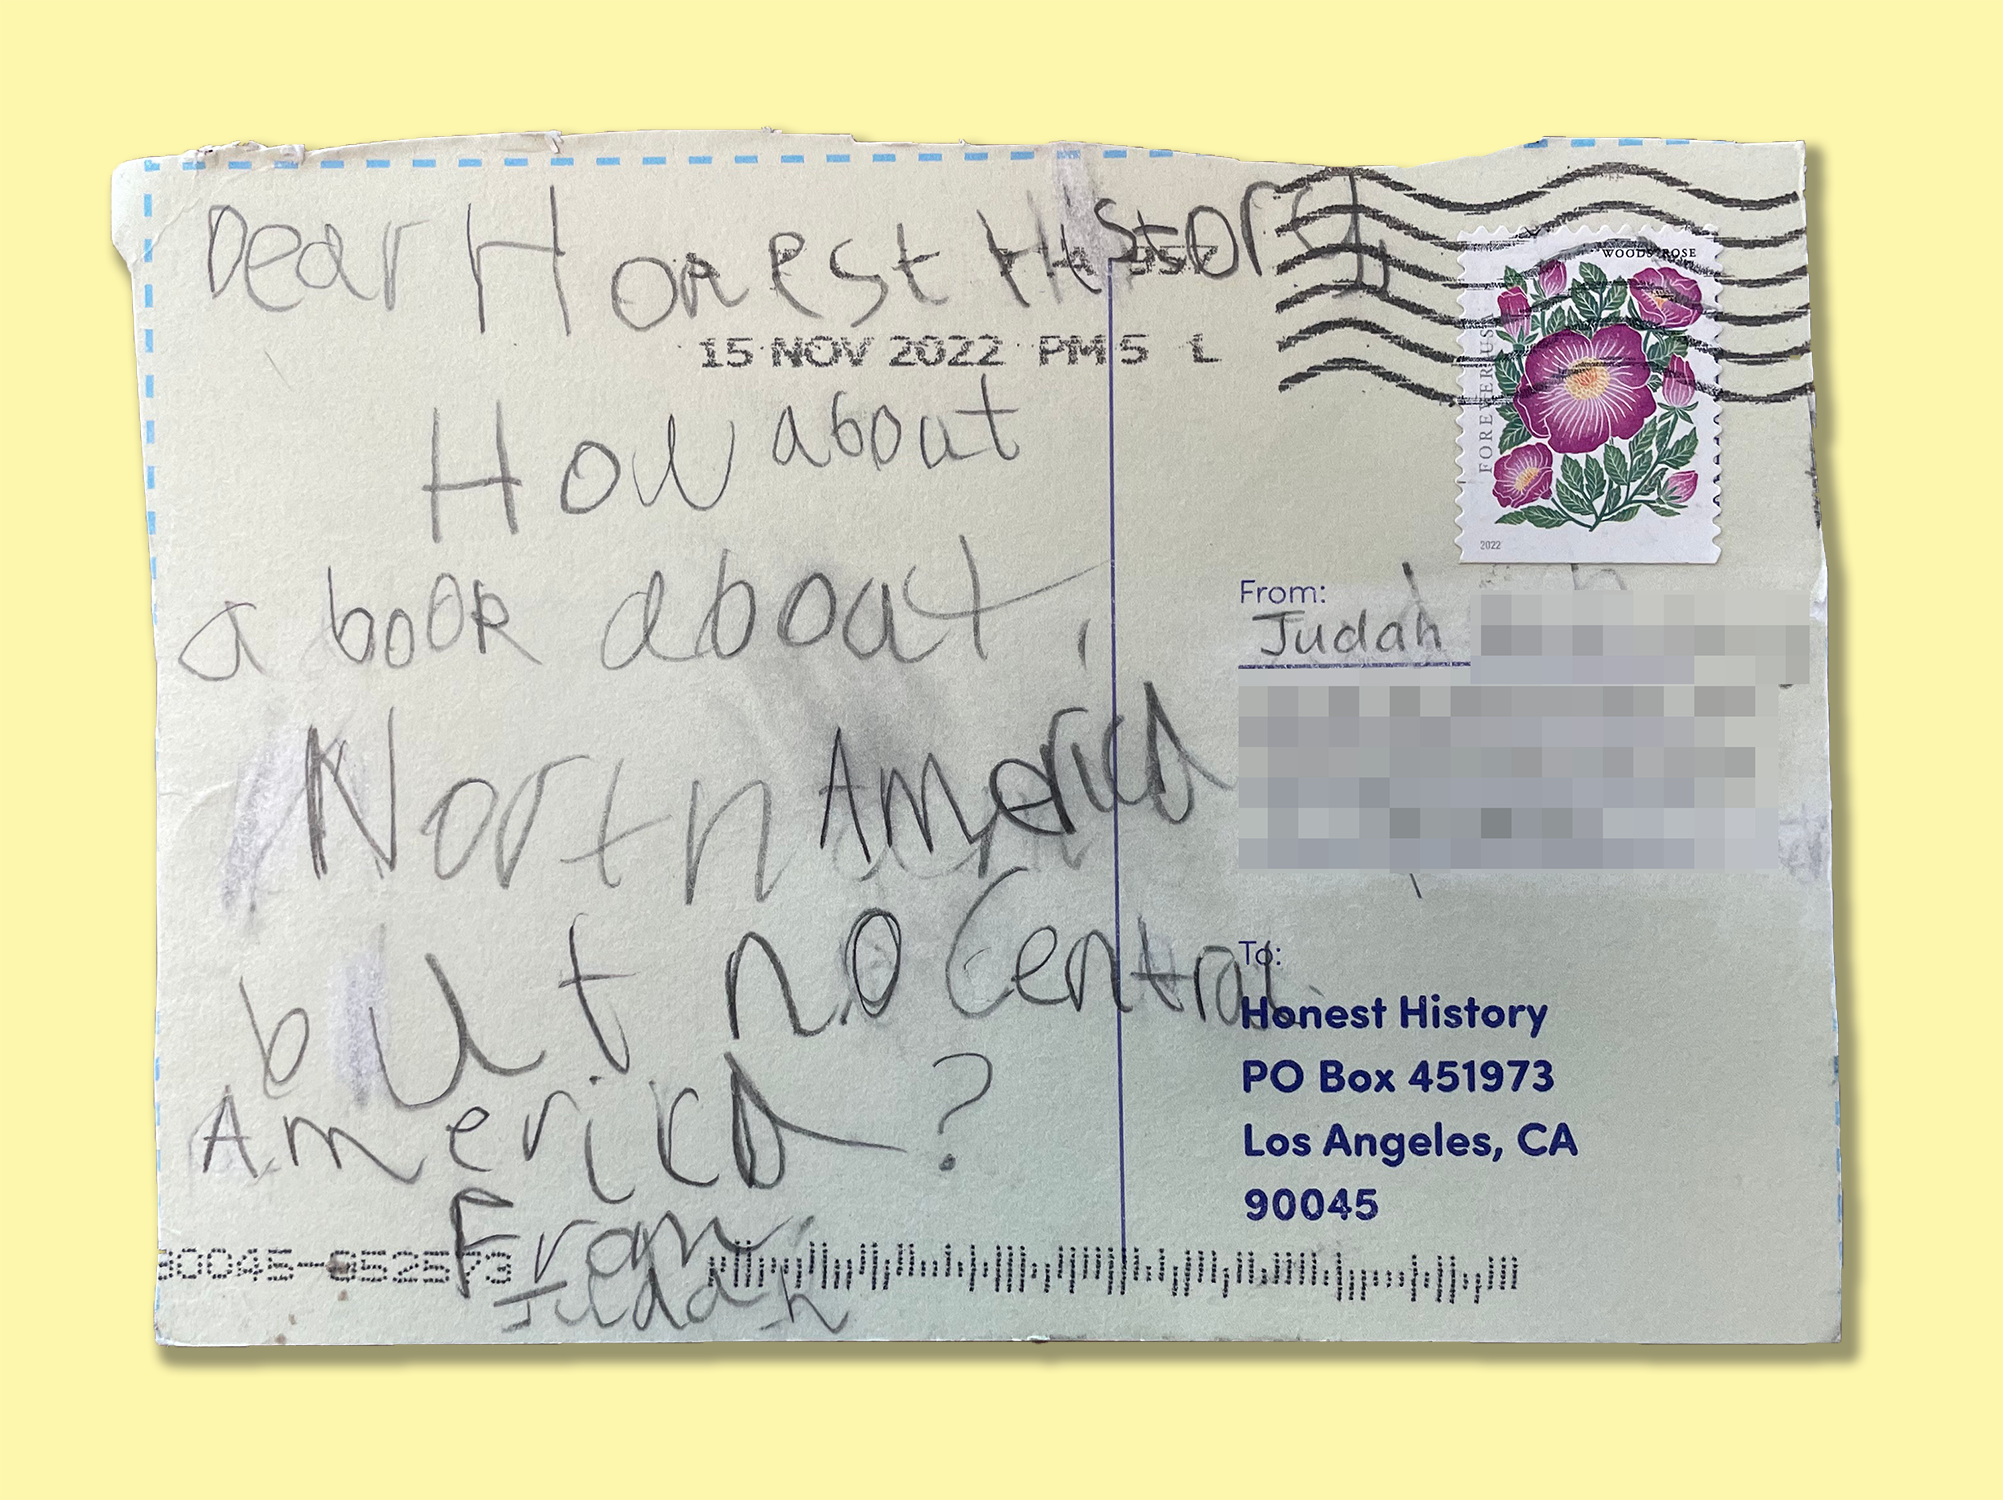 Dear Honest History,
15 NOV 2022 PM 5 L
How about
a book about,
North America
but no Central
America?
From,
Judah
WOODS' ROSE
FOREVER USA
2022
From:
Judah
To:
Honest History
PO Box 451973
Los Angeles, CA
90045